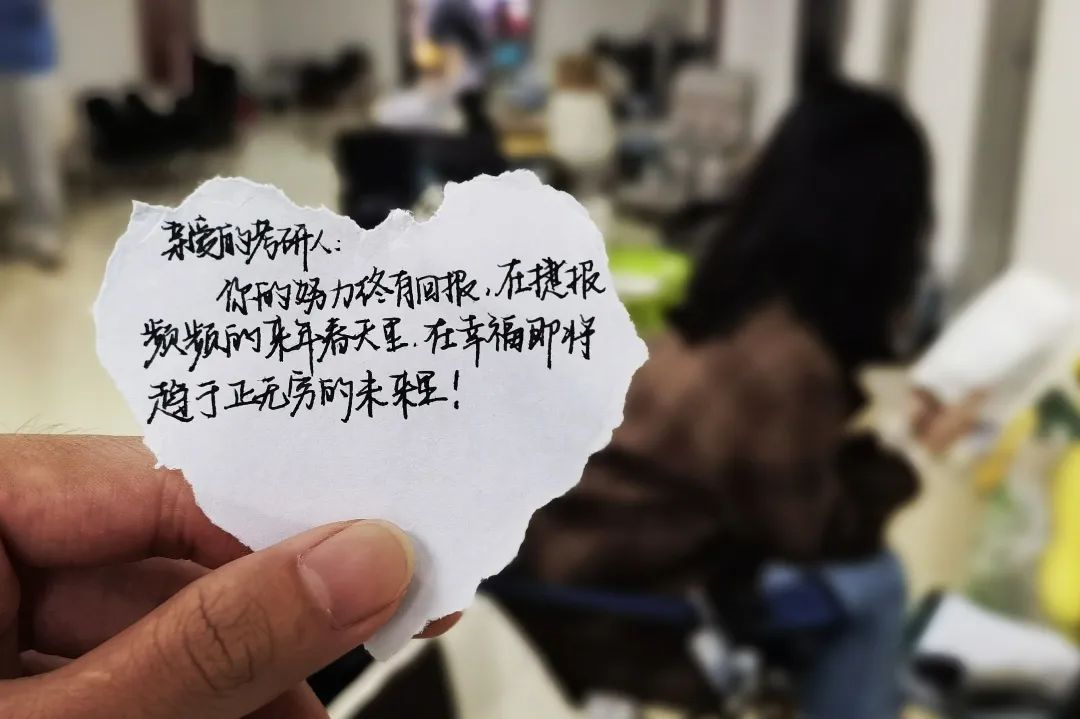 亲爱的考研人：
你的努力终有回报，在捷报
频频的来年春天里，在幸福即将
趋于正无穷的未来里！